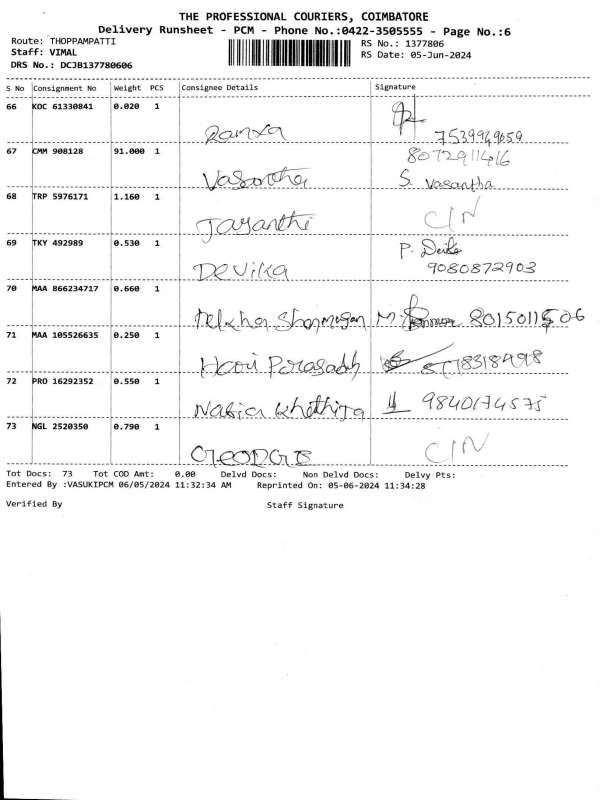 THE PROFESSIONAL COURIERS, COIMBATORE
Delivery Runsheet - PCM - Phone No.:0422-3505555 - Page No.:6
Route: THOPPAMPATTI
Staff: VIMAL
DRS No.: DCJB137780606
RS No.: 1377806
RS Date: 05-Jun-2024
S No Consignment No Weight PCS Consignee Details Signature
66 KOC 61330841 0.020 1
Ramya 7539949059
67 CMM 908128 91.000 1 8072911416
Vasantha S. Vasantha
68 TRP 5976171 1.160 1
Jayanthi C/N
69 TKY 492989 0.530 1 P. Devika
Devika 9080872903
70 MAA 866234717 0.660 1
M. 8015011506
71 MAA 105526635 0.250 1
Hari Parasadh
72 PRO 16292352 0.550 1
9840174575
73 NGL 2520350 0.790 1
GEORGE C/N
Tot Docs: 73 Tot COD Amt: 0.00 Delvd Docs: Non Delvd Docs: Delvy Pts:
Entered By :VASUKIPCM 06/05/2024 11:32:34 AM Reprinted On: 05-06-2024 11:34:28
Verified By Staff Signature